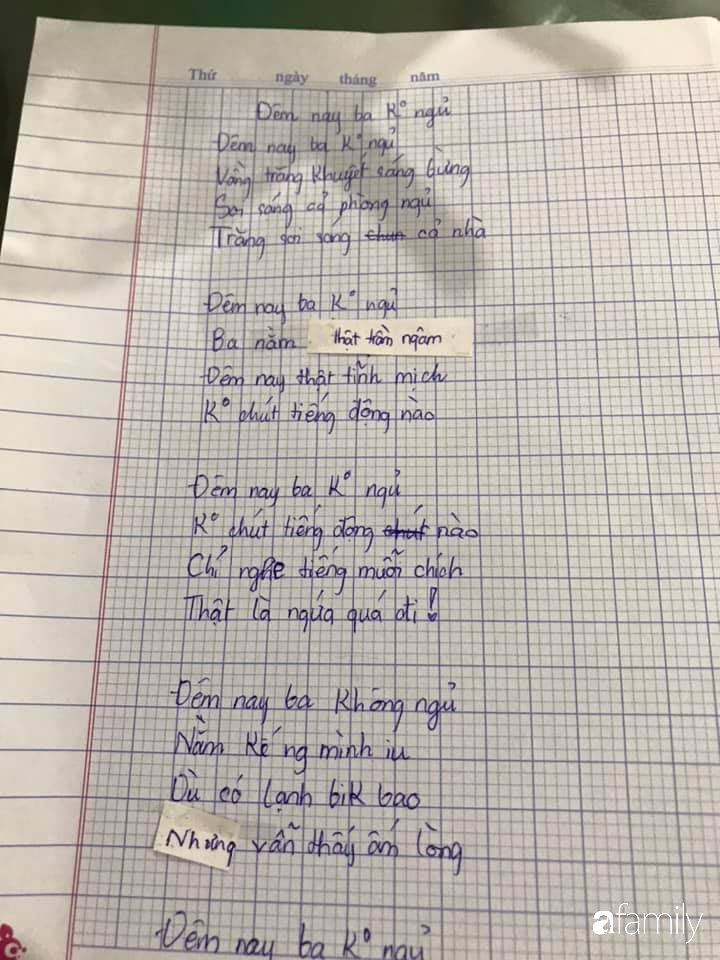 Thứ ngày tháng năm
Đêm nay ba K° ngủ
Đêm nay ba K° ngủ
Vầng trăng khuyết sáng bừng
Soi sáng cả phòng ngủ
Trăng soi sáng chun cả nhà
Đêm nay ba K° ngủ
Ba nằm thật trầm ngâm
Đêm nay thật tĩnh mịch
K° chút tiếng động nào
Đêm nay ba K° ngủ
K° chút tiếng động chút nào
Chỉ nghe tiếng muỗi chích
Thật là ngứa quá đi!
Đêm nay ba không ngủ
Nằm kế ng mình iu
Dù có lạnh bik bao
Nhưng vẫn thấy ấm lòng
Đêm nay ba K° ngủ
afamily